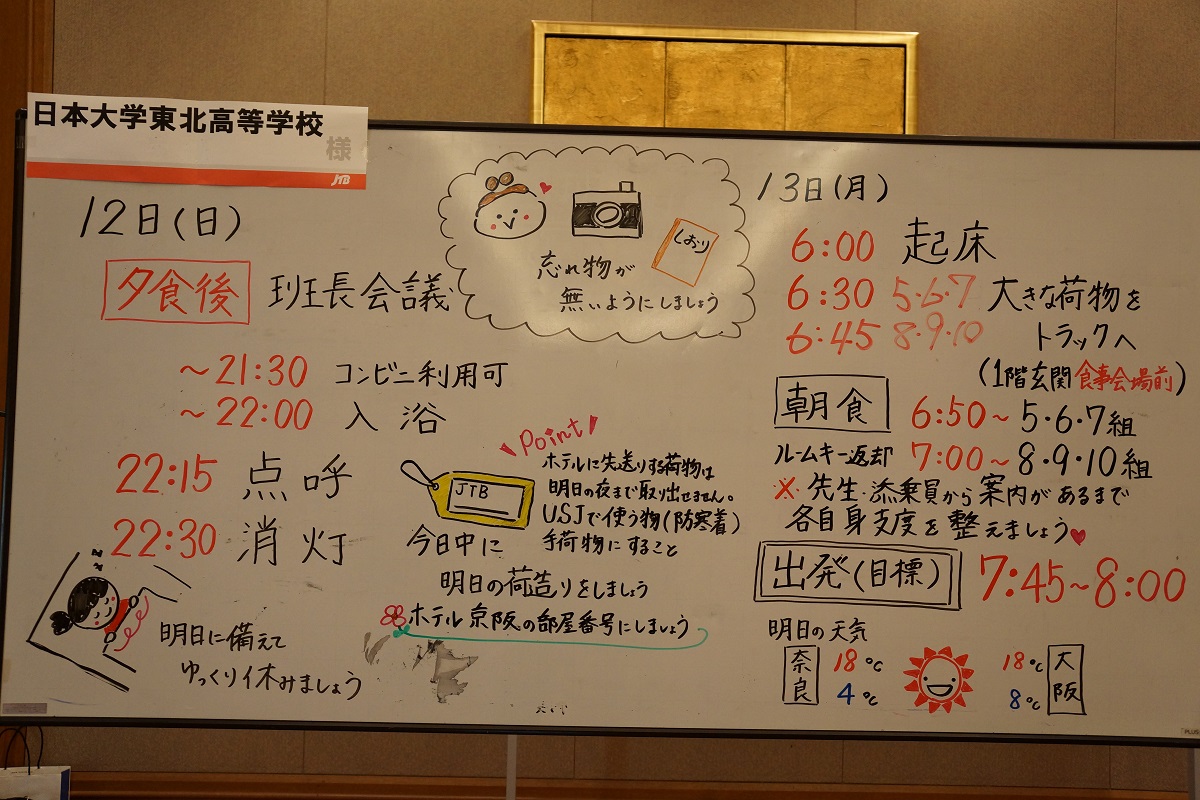 日本大学東北高等学校
様
JTB
12日(日)
夕食後 班長会議
～21:30 コンビニ利用可
～22:00 入浴
22:15 点呼
22:30 消灯
z z z
明日に備えて
ゆっくり休みましょう
しおり
忘れ物が
無いようにしましょう
Point
JTB
ホテルに先送りする荷物は
明日の夜まで取り出せません。
USJで使う物(防寒着)
手荷物にすること
今日中に
明日の荷造りをしましょう
ホテル京阪の部屋番号にしましょう
13日(月)
6:00 起床
6:30 5・6・7 大きな荷物を
6:45 8・9・10 トラックへ
(1階玄関食事会場前)
朝食 6:50～5・6・7組
ルームキー返却 7:00～8・9・10組
※先生・添乗員から案内があるまで
各自身支度を整えましょう
出発(目標) 7:45～8:00
明日の天気
奈良 18℃ 4℃
18℃ 8℃ 大阪
PLUS